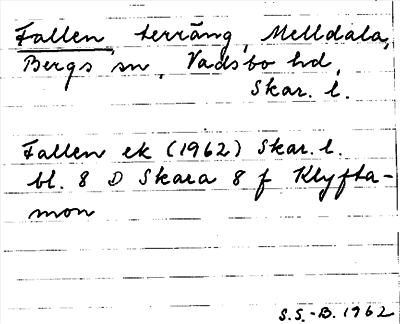 Fallen, terräng, Melldala,
Bergs sn, Vadsbo hd,
Skar. l.
Fallen ek (1962) Skar. l.
bl. 8 D Skara 8 f Klyfta-
mon
S.S.-B. 1962